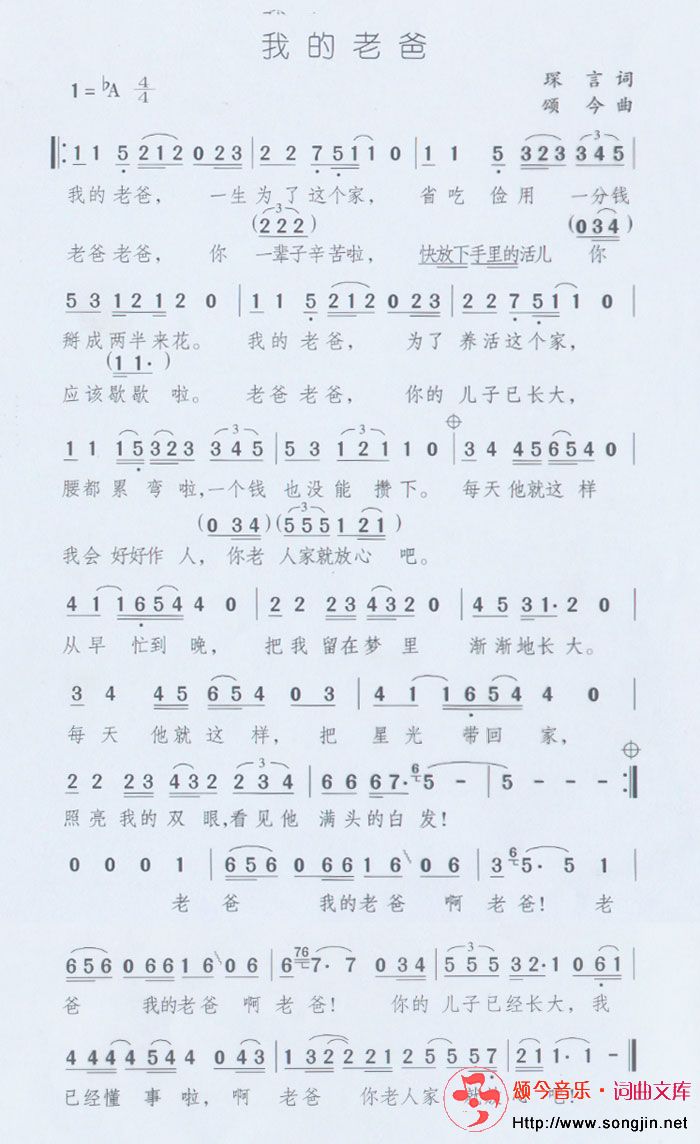 我的老爸
1=♭A 4/4
琛言词
颂今曲
1 1 5 2 1 2 0 2 3 | 2 2 7 5 1 1 0 | 1 1 5 3 2 3 3 4 5
我的老爸， 一生为了这个家， 省吃俭用 一分钱
(2 2 2) (0 3 4)
老爸老爸， 你 一辈子辛苦啦， 快放下手里的活儿 你
5 3 1 2 1 2 0 | 1 1 5 2 1 2 0 2 3 | 2 2 7 5 1 1 0
掰成两半来花。 我的老爸， 为了 养活这个家，
(1 1·)
应该歇歇啦。 老爸老爸， 你的儿子已长大，
1 1 1 5 3 2 3 3 4 5 | 5 3 1 2 1 1 0 | 3 4 4 5 6 5 4 0
腰都累弯啦，一个钱也没能攒下。 每天他就这样
(0 3 4) (5 5 5 1 2 1)
我会好好作人， 你老人家就放心吧。
4 1 1 6 5 4 4 0 | 2 2 2 3 4 3 2 0 | 4 5 3 1· 2 0
从早忙到晚， 把我留在梦里 渐渐地长大。
3 4 4 5 6 5 4 0 3 | 4 1 1 6 5 4 4 0
每天他就这样， 把星光带回家，
2 2 2 3 4 3 2 2 3 4 | 6 6 6 7· 6 5 - - | 5 - - :
照亮我的双眼，看见他满头的白发！
0 0 0 1 | 6 5 6 0 6 6 1 6 0 6 | 3 6 5· 5 1
老爸 我的老爸啊老爸！ 老
6 5 6 0 6 6 1 6 0 6 | 6 7 6 7· 7 0 3 4 | 5 5 5 3 2· 1 0 6 1
爸 我的老爸啊老爸！ 你的儿子已经长大，我
4 4 4 4 5 4 4 0 4 3 | 1 2 2 2 2 1 2 5 5 5 7 | 2 1 1· 0
已经懂事啦，啊老爸 你老人家 吧！
颂今音乐·词曲文库
Http://www.songjin.net